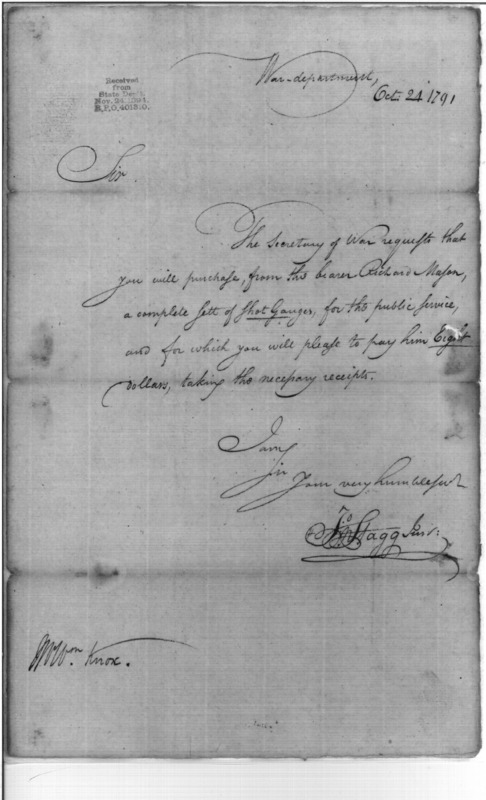 Received
from
State Dep't.
Nov. 24, 1921.
E.P.O. 401510.
War-department,
Oct: 24 1791
Sir
The Secretary of War requests that
you will purchase from the bearer Richard Mason,
a complete Sett of Shot Gauges, for the public service,
and for which you will please to pay him Eight
dollars, taking the necessary receipts.
I am
Sir
Your very humble servt
Jno Stagg Junr:
Mr Wm. Knox.